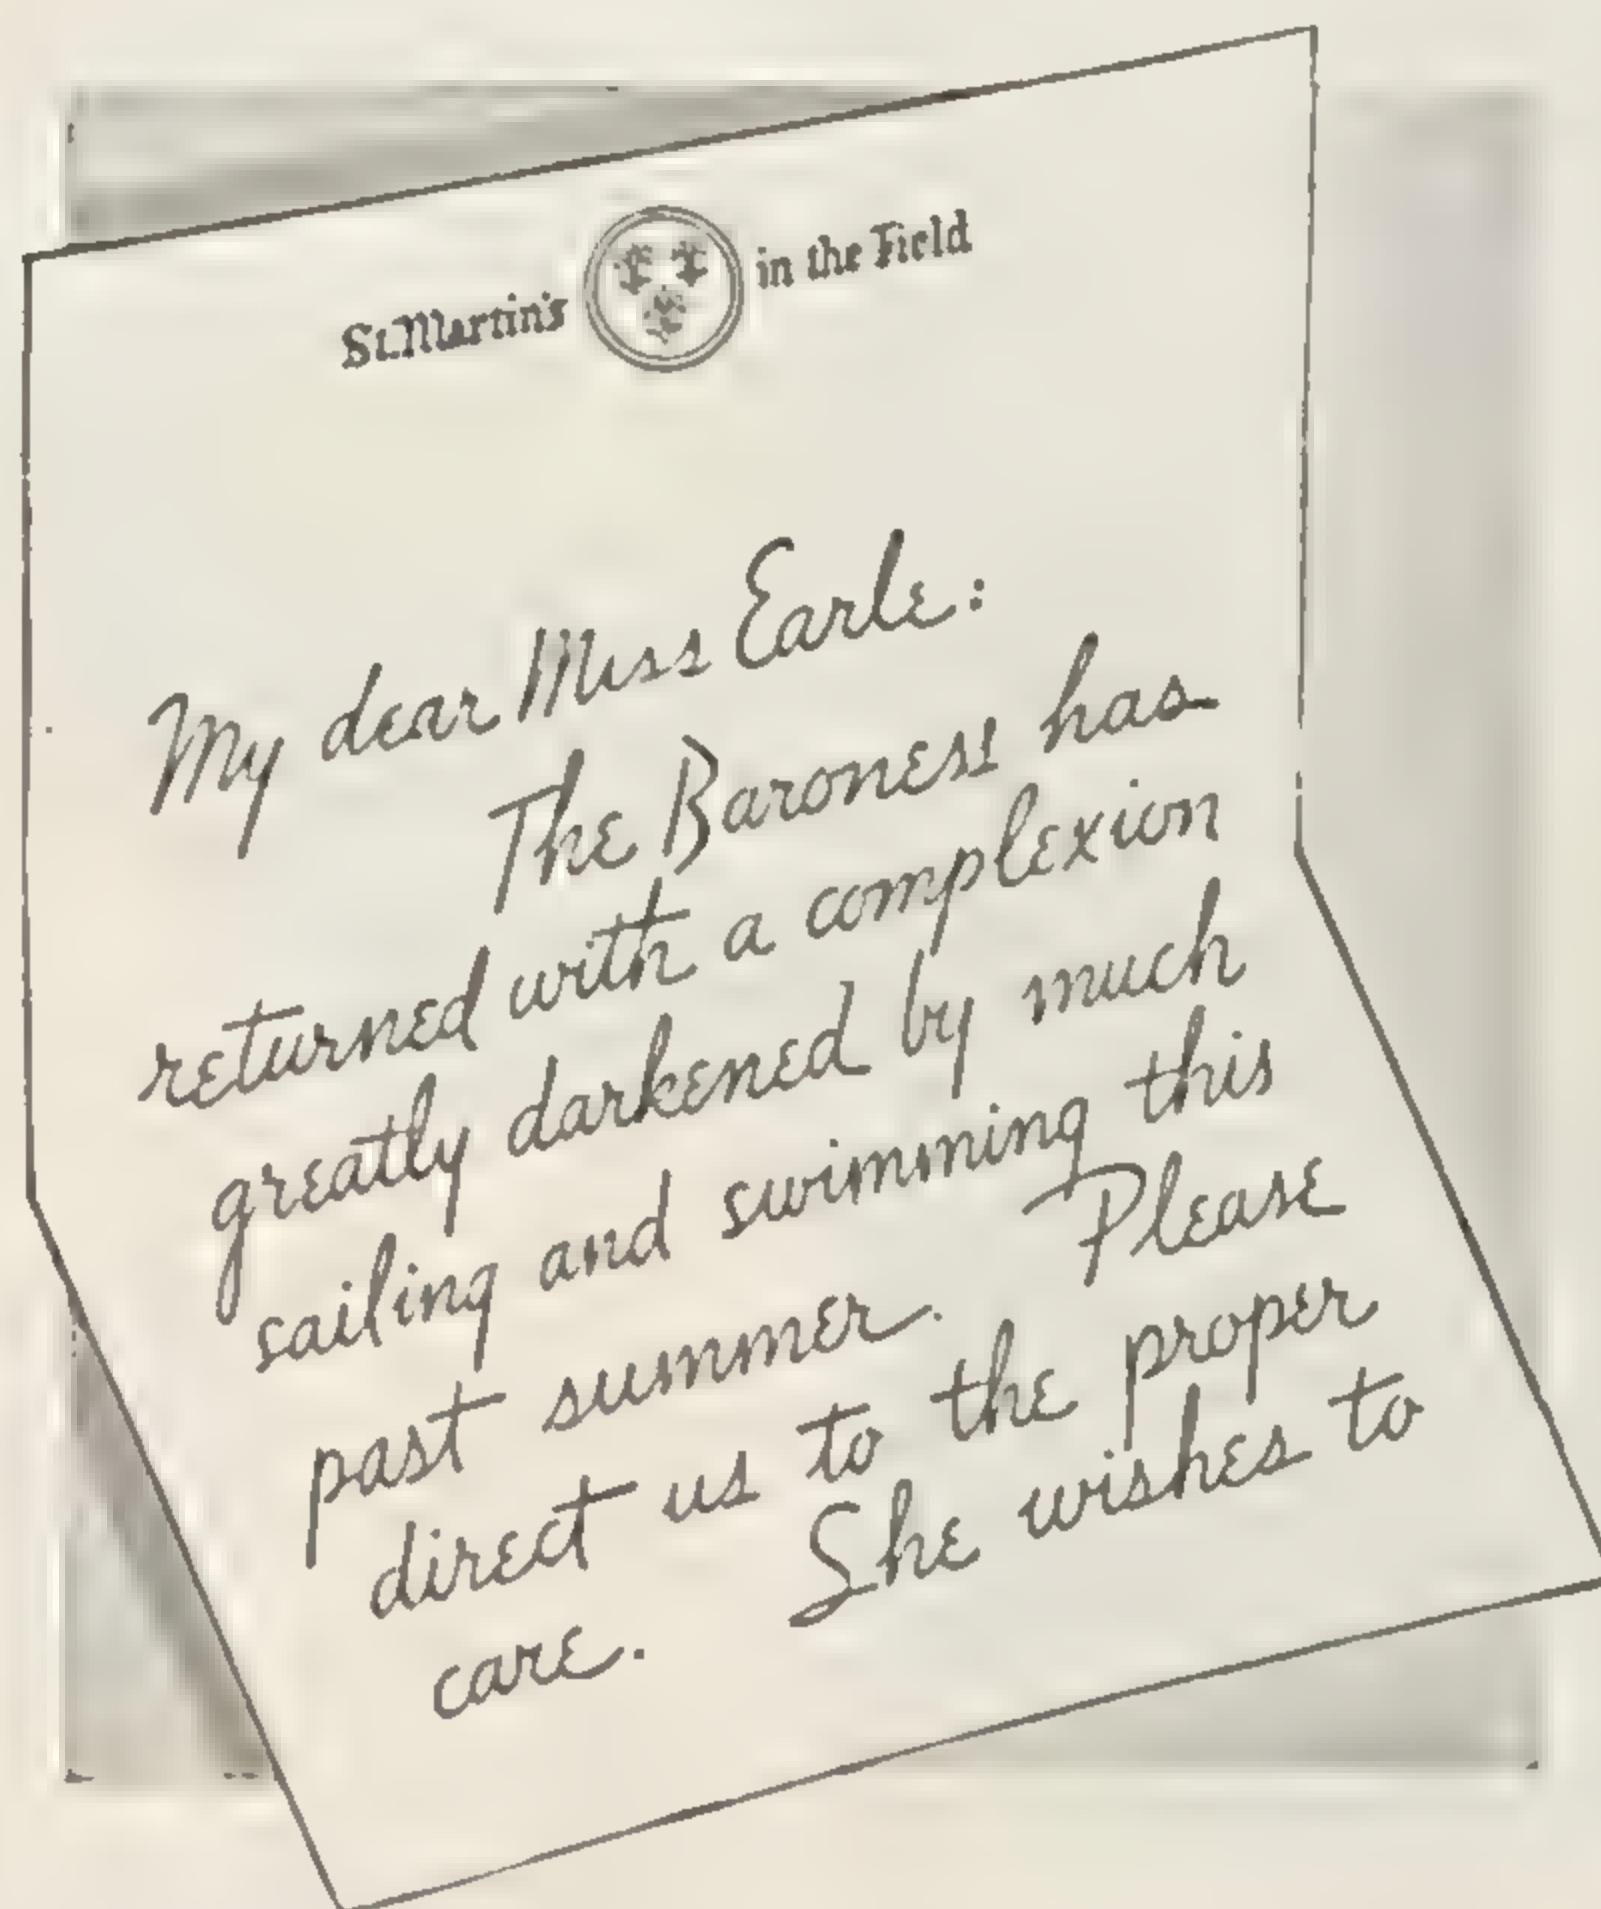 St. Martin's in the Field
My dear Miss Earle:
The Baroness has
returned with a complexion
greatly darkened by much
sailing and swimming this
past summer. Please
direct us to the proper
care. She wishes to